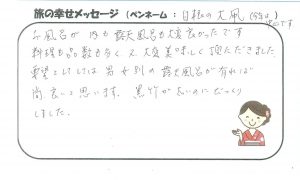 旅の幸せメッセージ (ペンネーム：日根の大凧
風呂が 内も 露天風呂も大変良かったです
料理も品数も多く、又大変美味しく頂んできました
要望としては 男女別の露天風呂が有れば
尚良いと思います。黒竹が太いのにびっくり
しました。